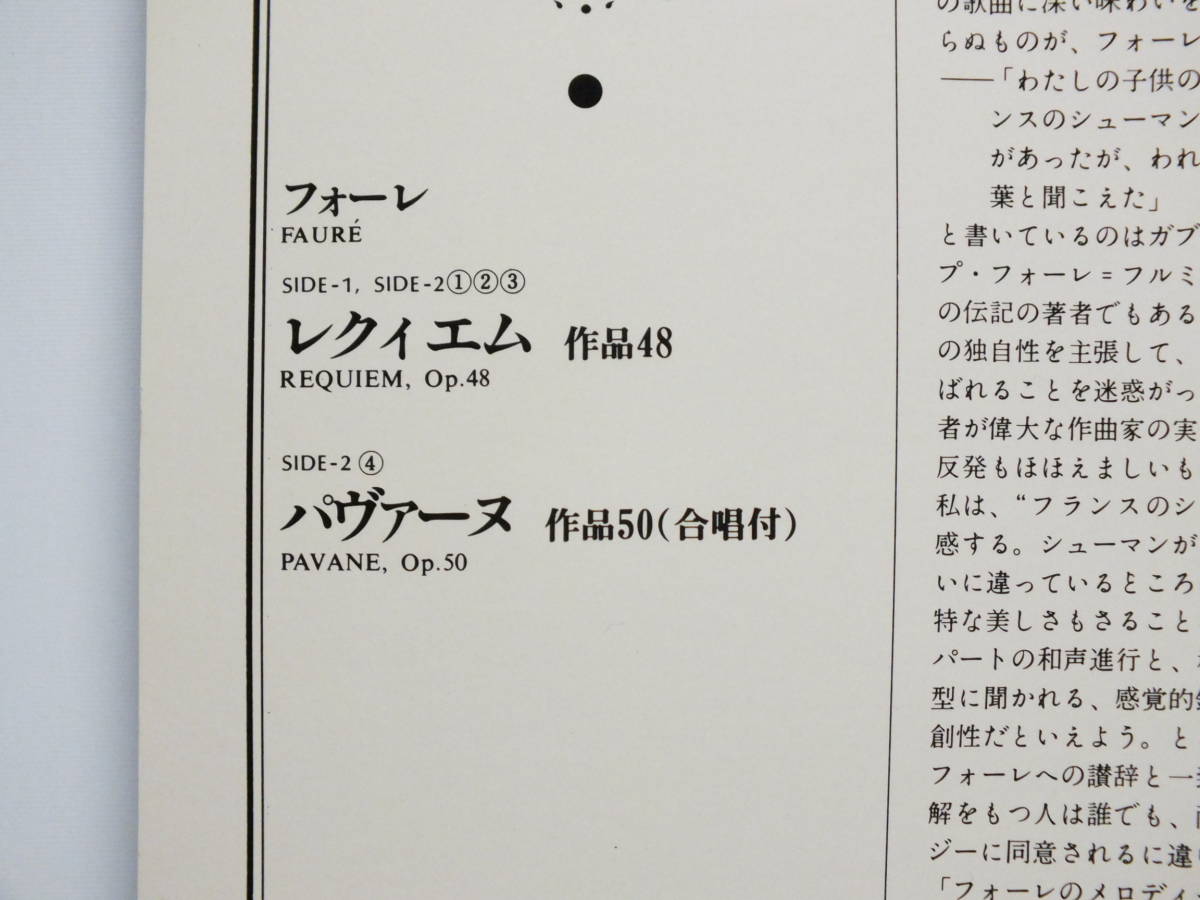 フォーレ
FAURÉ
SIDE-1, SIDE-2①②③
レクィエム 作品48
REQUIEM, Op.48
SIDE-2 ④
パヴァーヌ 作品50(合唱付)
PAVANE, Op.50
の歌曲に深い味わいを
らぬものが、フォーレ
——「わたしの子供の
ンスのシューマン
があったが、われ
葉と聞こえた」
と書いているのはガブ
プ・フォーレ=フルミ
の伝記の著者でもある
の独自性を主張して、
ばれることを迷惑がっ
者が偉大な作曲家の実
反発もほほえましいも
私は、“フランスのシ
感する。シューマンが
いに違っているところ
特な美しさもさること
パートの和声進行と、
型に聞かれる、感覚的
創性だといえよう。と
フォーレへの讃辞と一
解をもつ人は誰でも、
ジーに同意されるに違
「フォーレのメロディ